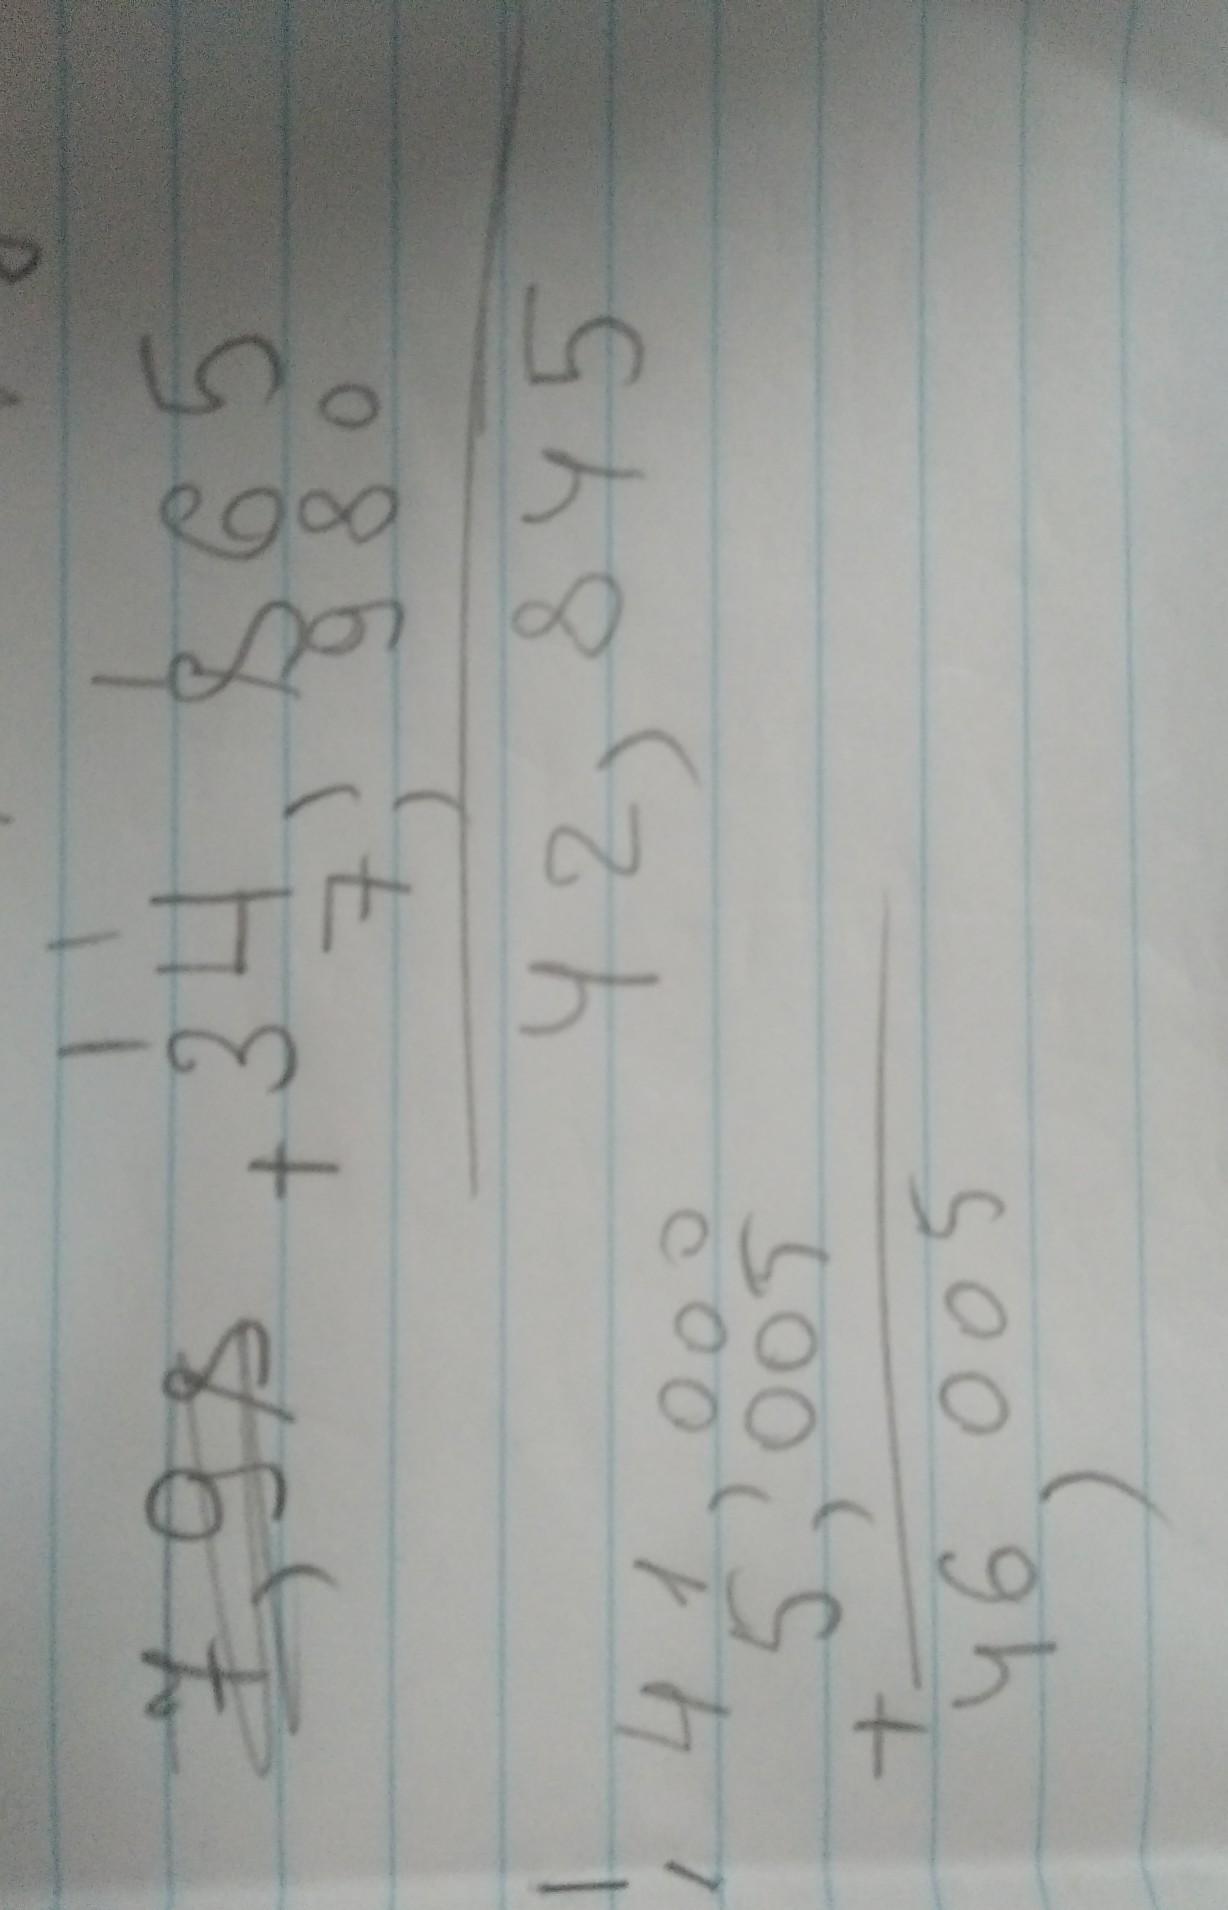 1 1 1
7,98 34,865
+ 7,980
42,845
41,000
5,005
+
46,005